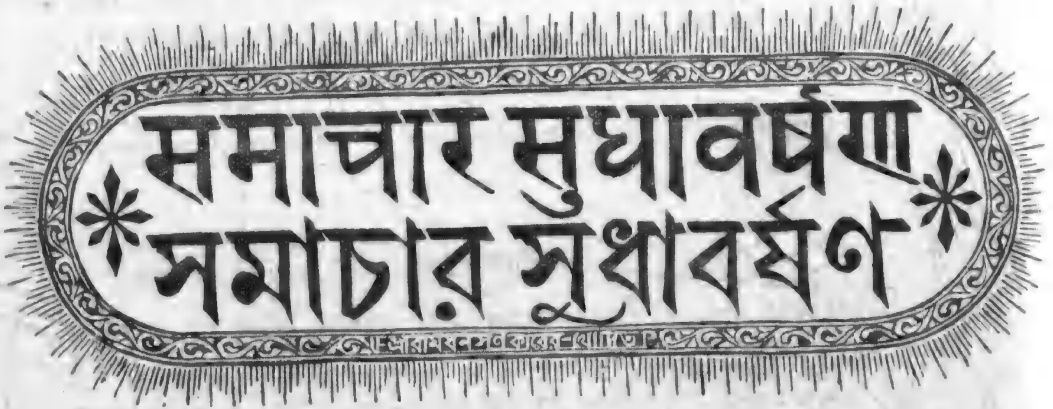 समाचार सुधावर्षण
সমাচার সুধাবর্ষণ